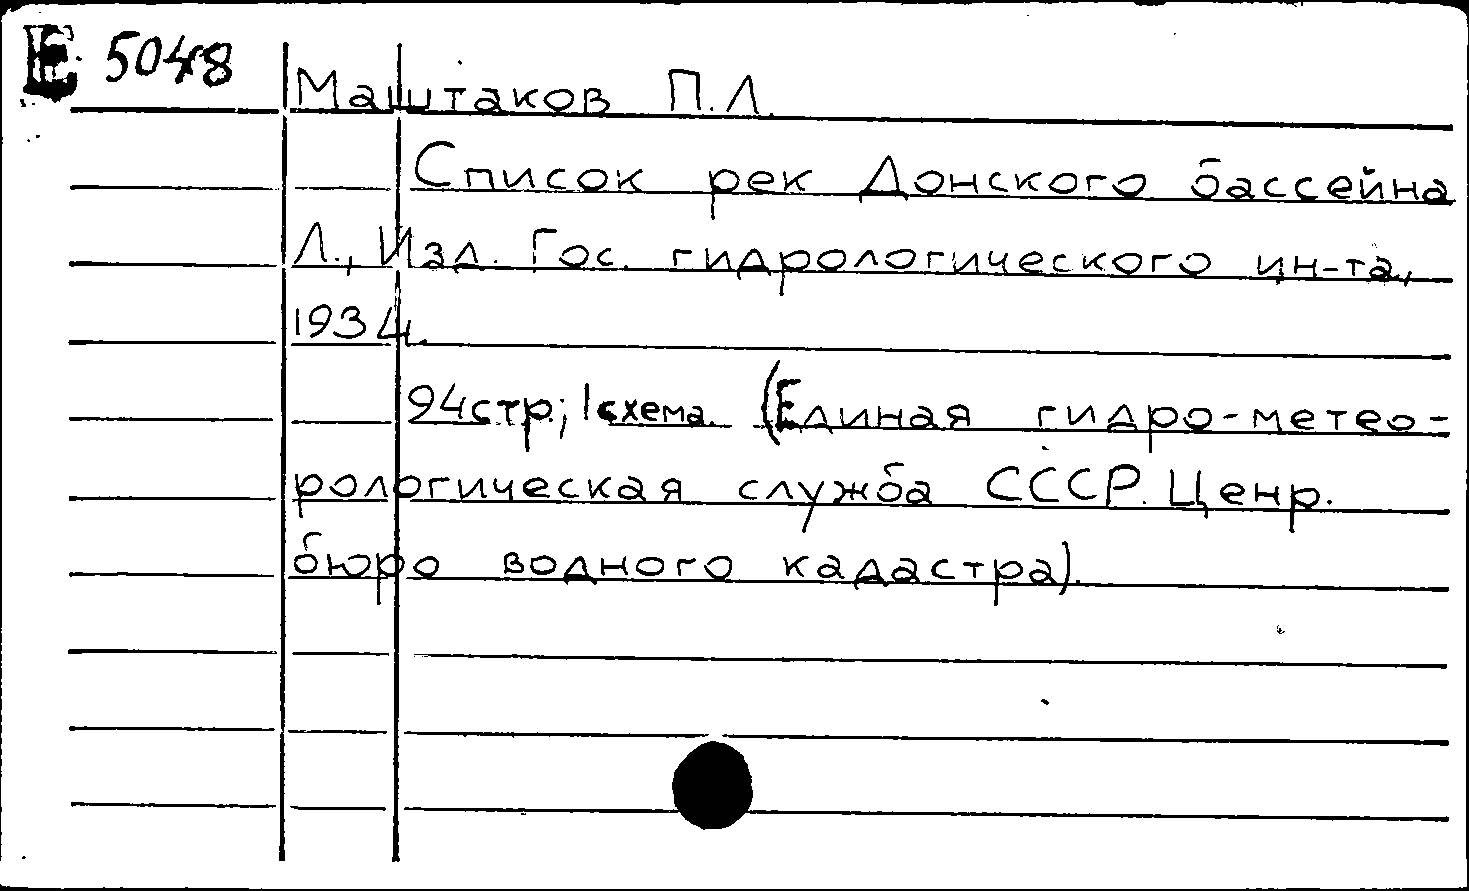 Е 5048
Маштаков П.Л.
Список рек Донского бассейна
Л., Изд. Гос. гидрологического ин-та,
1934.
94стр; 1схема. (Единая гидро-метео-
рологическая служба СССР. Ценр.
бюро водного кадастра).